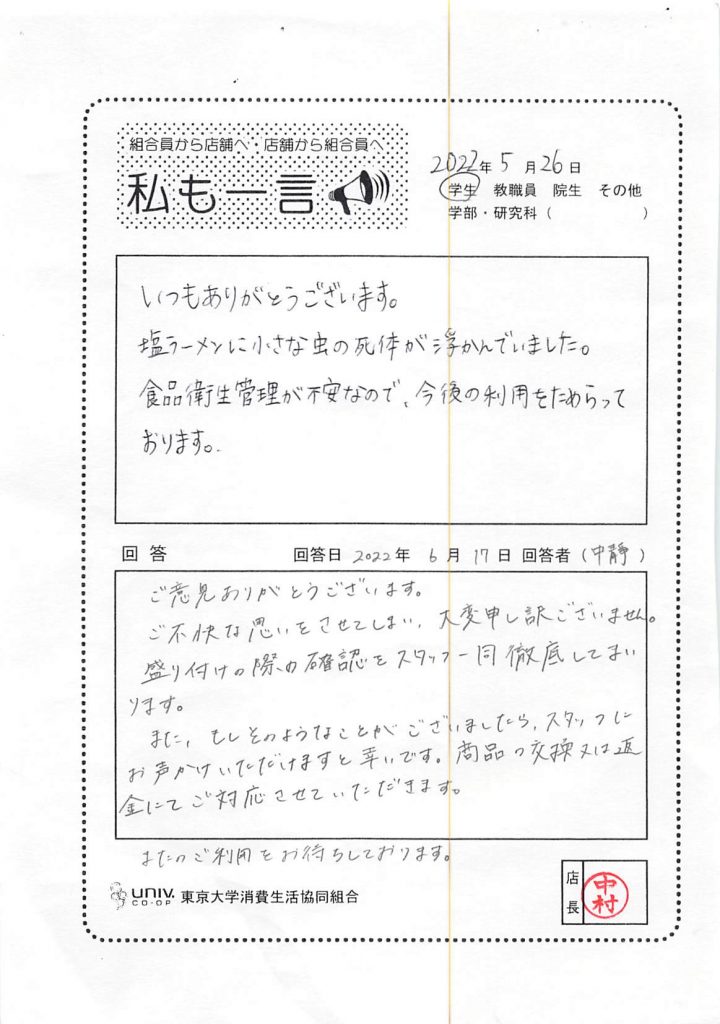 組合員から店舗へ・店舗から組合員へ
私も一言
2022年5月26日
学生 教職員 院生 その他
学部・研究科( )
いつもありがとうございます。
塩ラーメンに小さな虫の死体が浮かんでいました。
食品衛生管理が不安なので、今後の利用をためらって
おります。
回答 回答日 2022年 6月17日 回答者(中靜)
ご意見ありがとうございます。
ご不快な思いをさせてしまい、大変申し訳ございません。
盛り付けの際の確認をスタッフ一同徹底してまい
ります。
また、もしそのようなことがございましたら、スタッフに
お声かけいただけますと幸いです。商品の交換又は返
金にてご対応させていただきます。
またのご利用をお待ちしております。
UNIV. CO-OP 東京大学消費生活協同組合
店長 中村